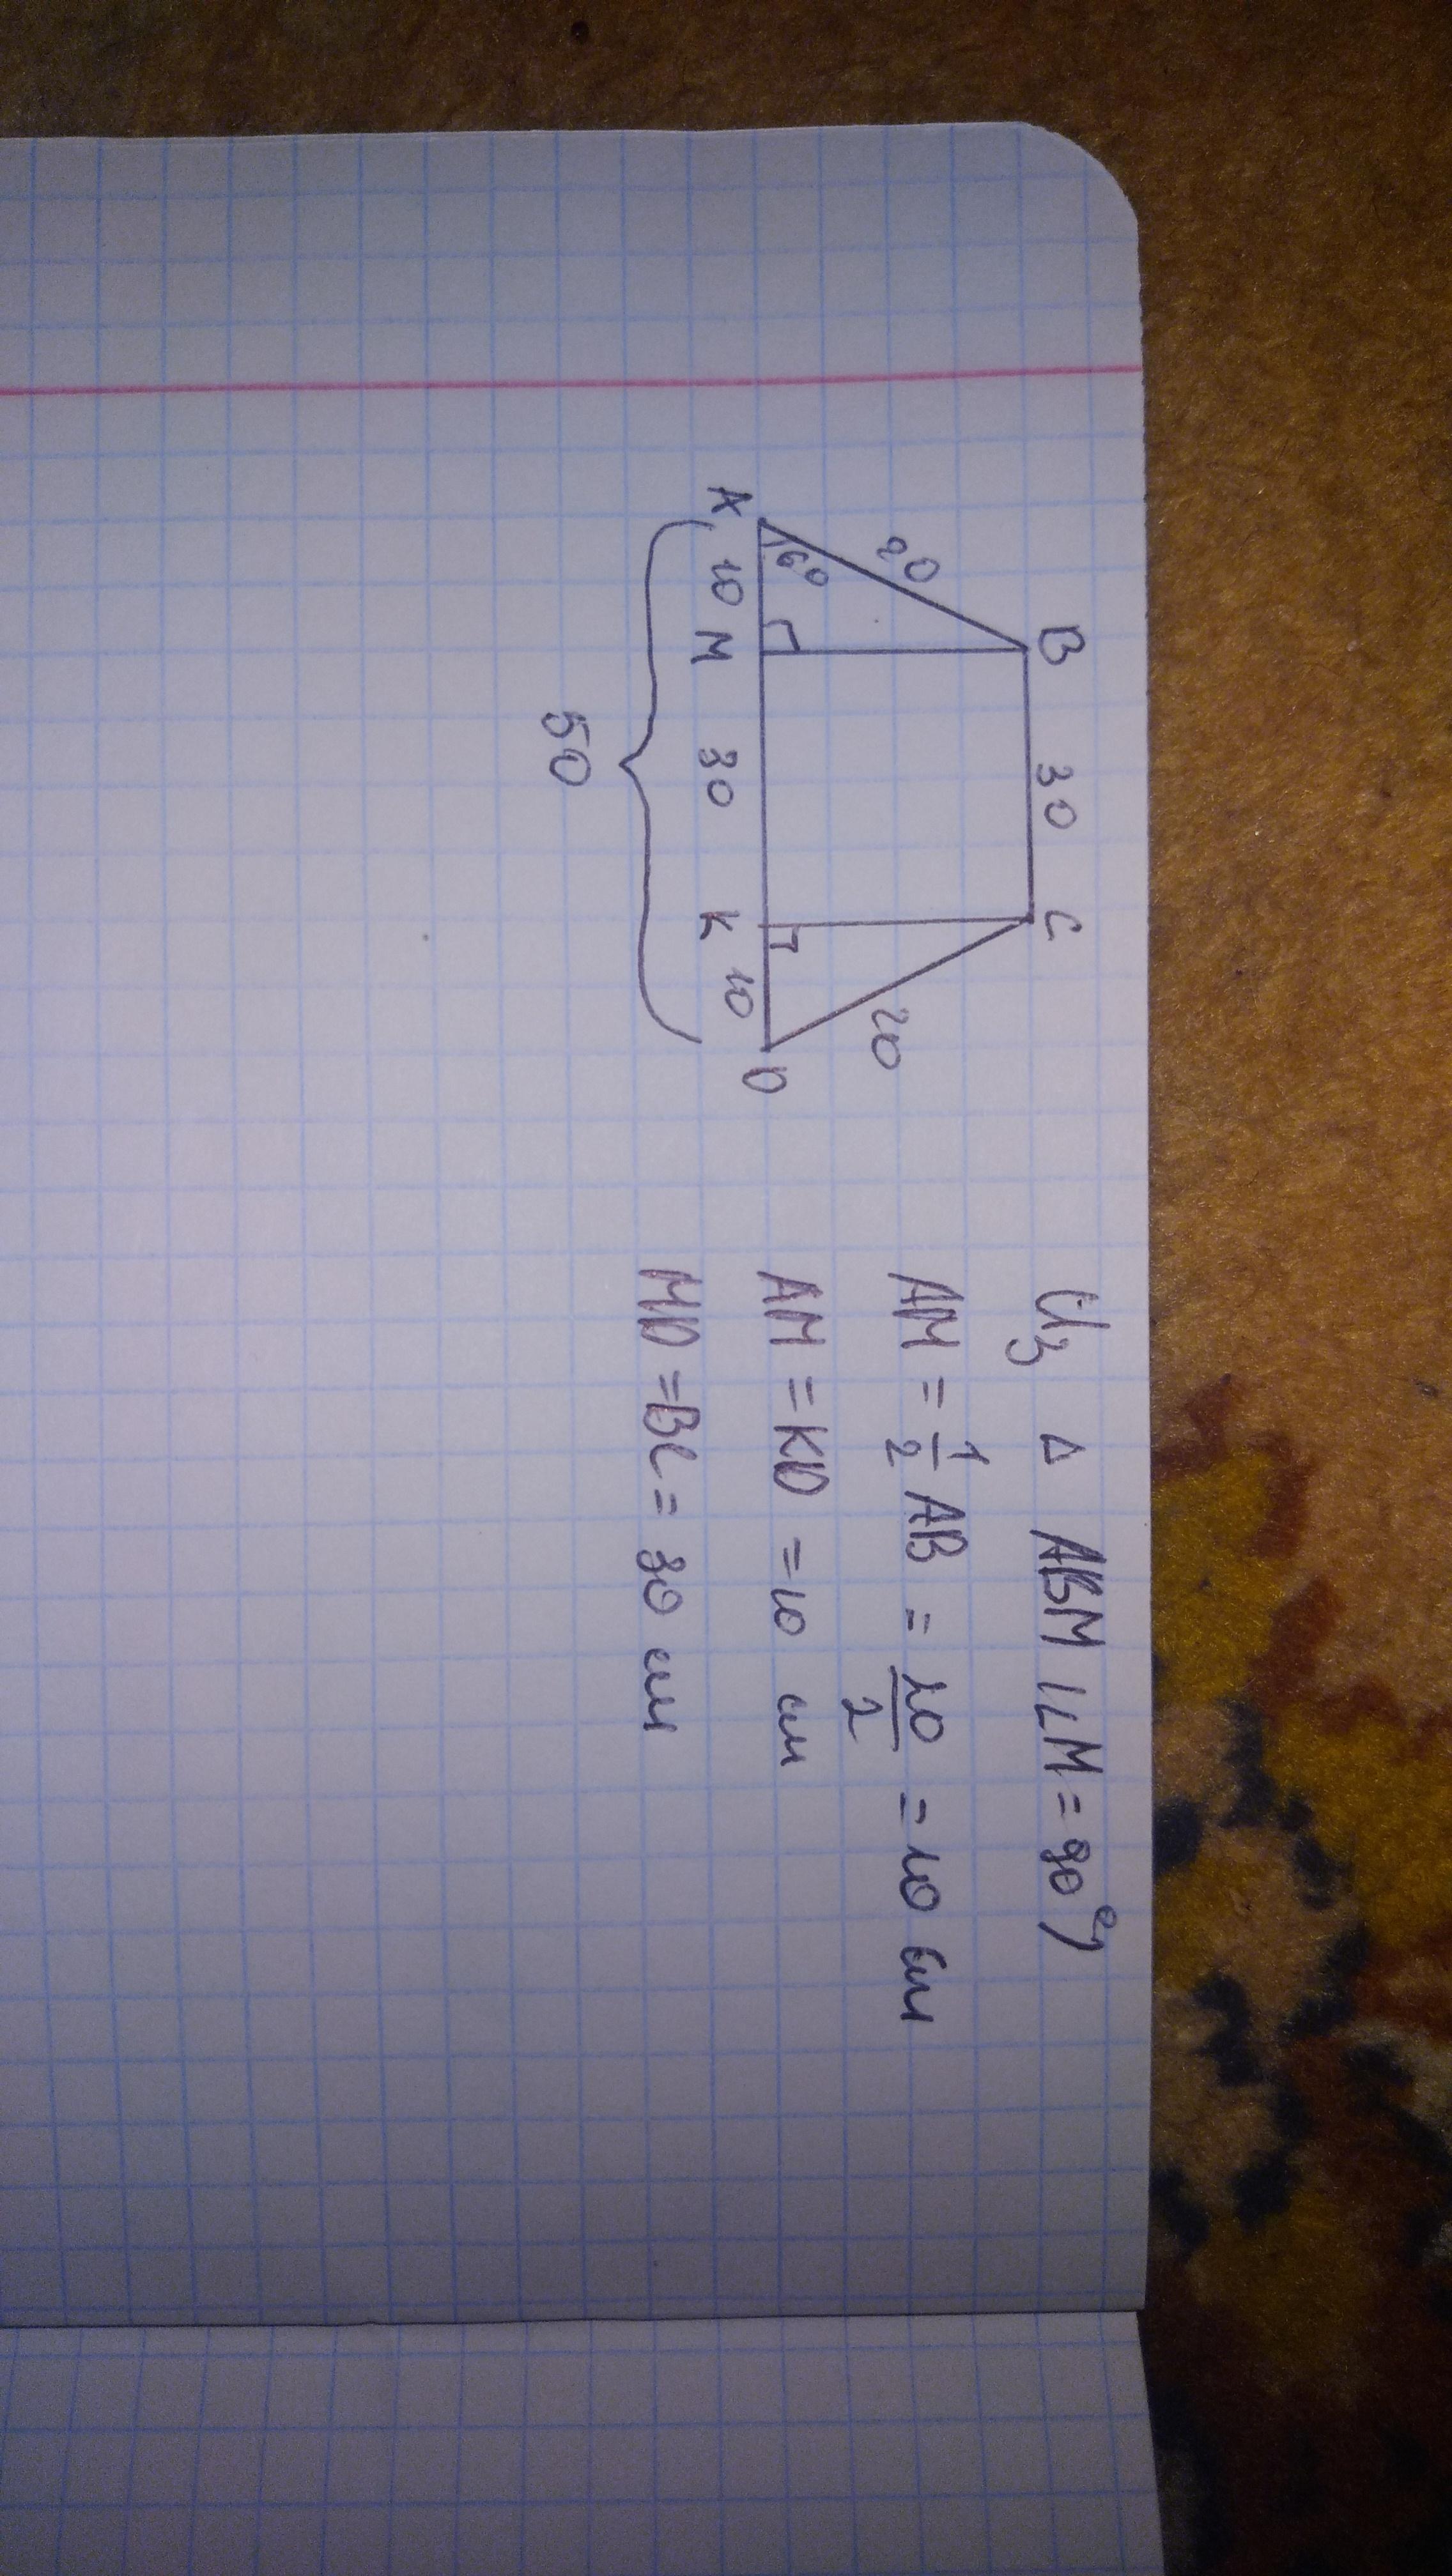 B 30 C
20 20
60
A 10 M 30 K 10 D
50
Из △ ABM (∠M = 90°)
AM = 1/2 AB = 20/2 = 10 см
AM = KD = 10 см
MD = BC = 30 см